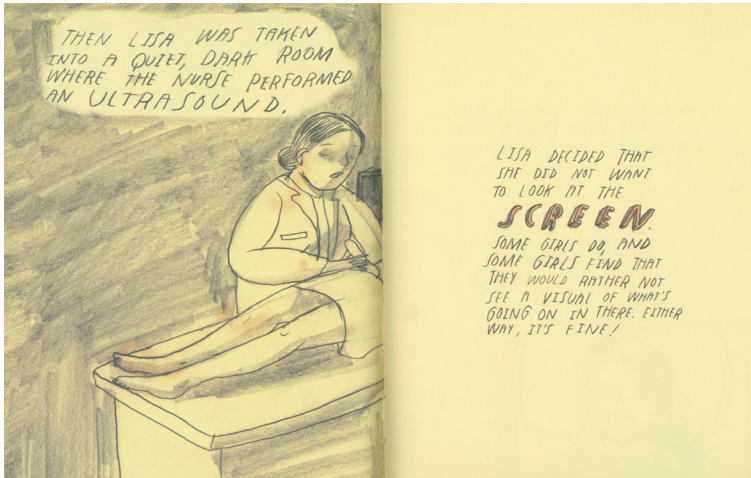 THEN LISA WAS TAKEN
INTO A QUIET, DARK ROOM
WHERE THE NURSE PERFORMED
AN ULTRASOUND.
LISA DECIDED THAT
SHE DID NOT WANT
TO LOOK AT THE
SCREEN.
SOME GIRLS DO, AND
SOME GIRLS FIND THAT
THEY WOULD RATHER NOT
SEE A VISUAL OF WHAT'S
GOING ON IN THERE. EITHER
WAY, IT'S FINE!